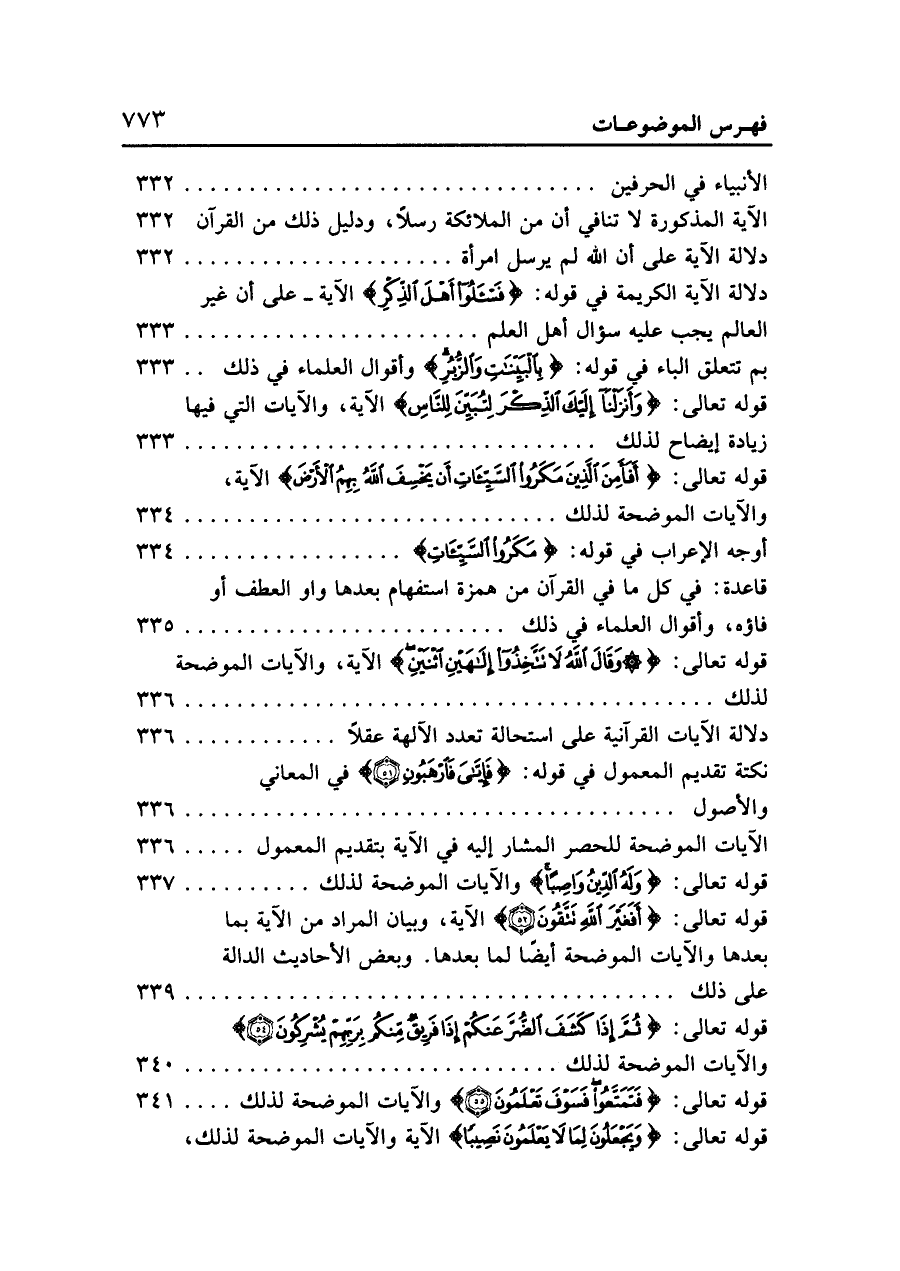 فهـرس الموضوعـات ٧٧٣
الأنبياء في الحرفين ................................ ٣٣٢
الآية المذكورة لا تنافي أن من الملائكة رسلاً، ودليل ذلك من القرآن ٣٣٢
دلالة الآية على أن الله لم يرسل امرأة ..................... ٣٣٢
دلالة الآية الكريمة في قوله: ﴿فَسْـَٔلُوٓا۟ أَهْلَ ٱلذِّكْرِ﴾ الآية ـ على أن غير
العالم يجب عليه سؤال أهل العلم ....................... ٣٣٣
بم تتعلق الباء في قوله: ﴿بِٱلْبَيِّنَـٰتِ وَٱلزُّبُرِۗ﴾ وأقوال العلماء في ذلك .. ٣٣٣
قوله تعالى: ﴿وَأَنزَلْنَآ إِلَيْكَ ٱلذِّكْرَ لِتُبَيِّنَ لِلنَّاسِ﴾ الآية، والآيات التي فيها
زيادة إيضاح لذلك ................................ ٣٣٣
قوله تعالى: ﴿أَفَأَمِنَ ٱلَّذِينَ مَكَرُوا۟ ٱلسَّيِّـَٔاتِ أَن يَخْسِفَ ٱللَّهُ بِهِمُ ٱلْأَرْضَ﴾ الآية،
والآيات الموضحة لذلك ............................. ٣٣٤
أوجه الإعراب في قوله: ﴿مَكَرُوا۟ ٱلسَّيِّـَٔاتِ﴾ ................. ٣٣٤
قاعدة: في كل ما في القرآن من همزة استفهام بعدها واو العطف أو
فاؤه، وأقوال العلماء في ذلك ......................... ٣٣٥
قوله تعالى: ﴿۞ وَقَالَ ٱللَّهُ لَا تَتَّخِذُوٓا۟ إِلَـٰهَيْنِ ٱثْنَيْنِۖ﴾ الآية، والآيات الموضحة
لذلك ......................................... ٣٣٦
دلالة الآيات القرآنية على استحالة تعدد الآلهة عقلاً ............ ٣٣٦
نكتة تقديم المعمول في قوله: ﴿فَإِيَّـٰىَ فَٱرْهَبُونِ ۝٥١﴾ في المعاني
والأصول ...................................... ٣٣٦
الآيات الموضحة للحصر المشار إليه في الآية بتقديم المعمول ..... ٣٣٦
قوله تعالى: ﴿وَلَهُ ٱلدِّينُ وَاصِبًاۚ﴾ والآيات الموضحة لذلك .......... ٣٣٧
قوله تعالى: ﴿أَفَغَيْرَ ٱللَّهِ تَتَّقُونَ ۝٥٢﴾ الآية، وبيان المراد من الآية بما
بعدها والآيات الموضحة أيضًا لما بعدها. وبعض الأحاديث الدالة
على ذلك ...................................... ٣٣٩
قوله تعالى: ﴿ثُمَّ إِذَا كَشَفَ ٱلضُّرَّ عَنكُمْ إِذَا فَرِيقٌ مِّنكُم بِرَبِّهِمْ يُشْرِكُونَ ۝٥٤﴾
والآيات الموضحة لذلك ............................. ٣٤٠
قوله تعالى: ﴿فَتَمَتَّعُوا۟ۖ فَسَوْفَ تَعْلَمُونَ ۝٥٥﴾ والآيات الموضحة لذلك .... ٣٤١
قوله تعالى: ﴿وَيَجْعَلُونَ لِمَا لَا يَعْلَمُونَ نَصِيبًا﴾ الآية والآيات الموضحة لذلك،